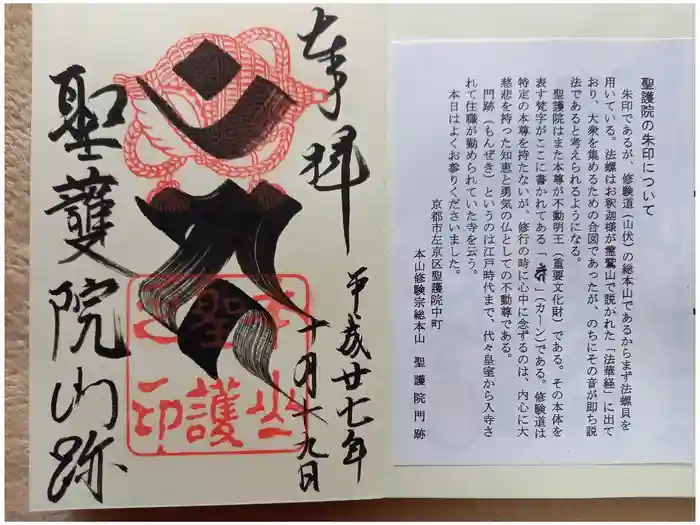 奉拝
平成廿七年
十月十九日
聖護院門跡
聖護院の朱印について
朱印であるが、修験道（山伏）の総本山であるからまず法螺貝を
用いている。法螺はお釈迦様が霊鷲山で説かれた「法華経」に出て
おり、大衆を集めるための合図であったが、のちにその音が即ち説
法であると考えられるようになる。
聖護院はまた本尊が不動明王（重要文化財）である。その本体を
表す梵字がここに書かれてある「」（カーン）である。修験道は
特定の本尊を持たないが、修行の時に心中に念ずるのは、内心に大
慈悲を持った知恵と勇気の仏としての不動尊である。
門跡（もんぜき）というのは江戸時代まで、代々皇室から入寺さ
れて住職が勤められていた寺を云う。
本日はよくお参りくださいました。
京都市左京区聖護院中町
本山修験宗総本山　聖護院門跡